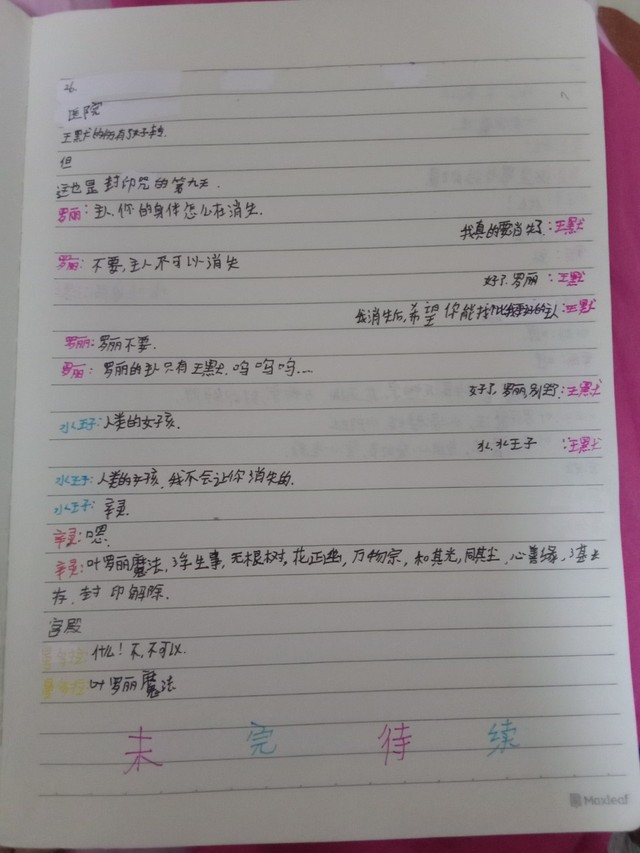 26.
医院
王默的伤有好转.
但
这也是封印咒的第九天.
罗丽:主人,你的身体怎么在消失.
我真的要消失了:王默
罗丽:不要,主人不可以消失
好了,罗丽:王默
我消失后,希望你能找个比我更好的主人:王默
罗丽:罗丽不要.
罗丽:罗丽的主人只有王默,呜呜呜...
好了,罗丽,别哭:王默
水王子:人类的女孩.
水,水王子:王默
水王子:人类的女孩,我不会让你消失的.
水王子:辛灵
辛灵:嗯.
辛灵:叶罗丽魔法,浮生事,无根树,花正幽,万物宗,和其光,同其尘,心善缘,湛
存,封印解除.
宫殿
什么!不,不可以.
叶罗丽魔法
未完待续
Maxleaf